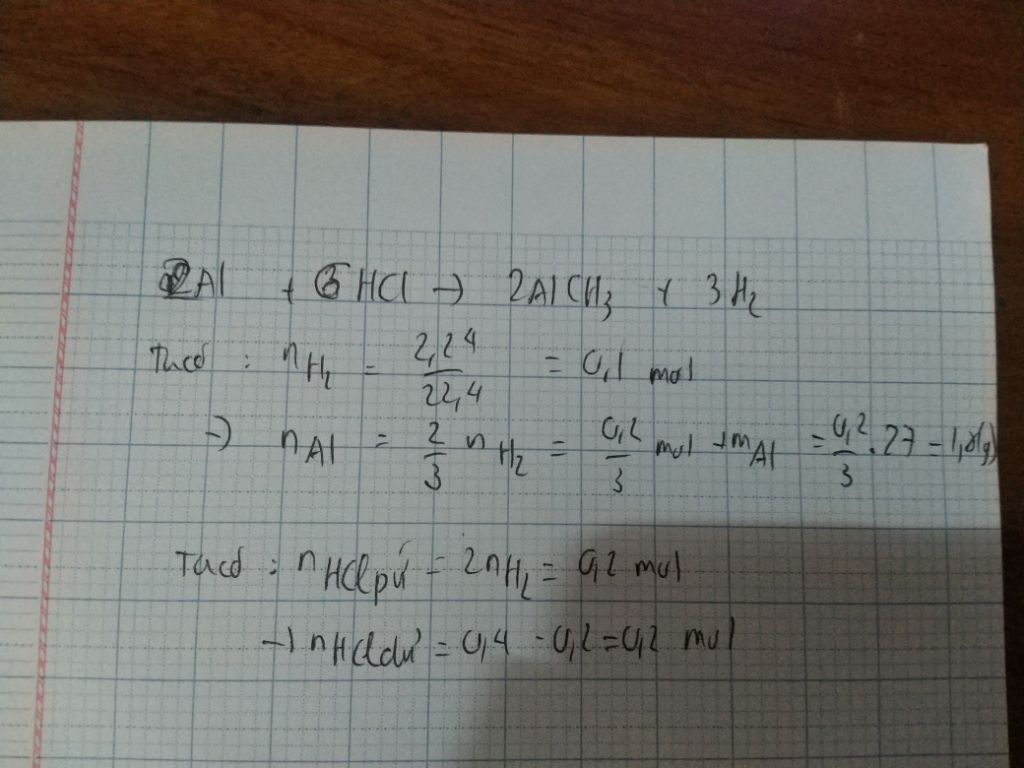 2Al + 6 HCl → 2AlCH3 + 3H2
Ta có : nH2 = 2,24/22,4 = 0,1 mol
→ nAl = 2/3 nH2 = 0,2/3 mol → mAl = 0,2/3 . 27 = 1,8(g)
Ta có : nHCl pứ = 2nH2 = 0,2 mol
→ nHCl dư = 0,4 - 0,2 = 0,2 mol